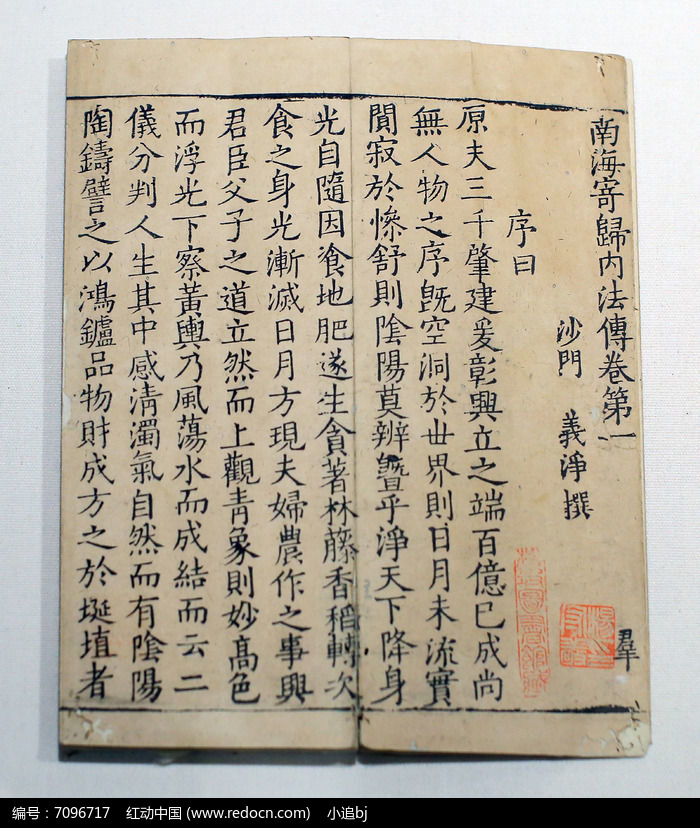 南海寄歸內法傳卷第一
羣
沙門 義淨撰
序曰
原夫三千肇建爰彰興立之端百億已成尚
無人物之序旣空洞於世界則日月未流實
閴寂於慘舒則陰陽莫辨曁乎淨天下降身
光自隨因飡地肥遂生貪著林藤香稻轉次
食之身光漸滅日月方現夫婦農作之事興
君臣父子之道立然而上觀青象則妙高色
而浮光下察黃輿乃風蕩水而成結而云二
儀分判人生其中感清濁氣自然而有陰陽
陶鑄譬之以鴻鑪品物財成方之於埏埴者
编号：7096717 红动中国 (www.redocn.com) 小追bj